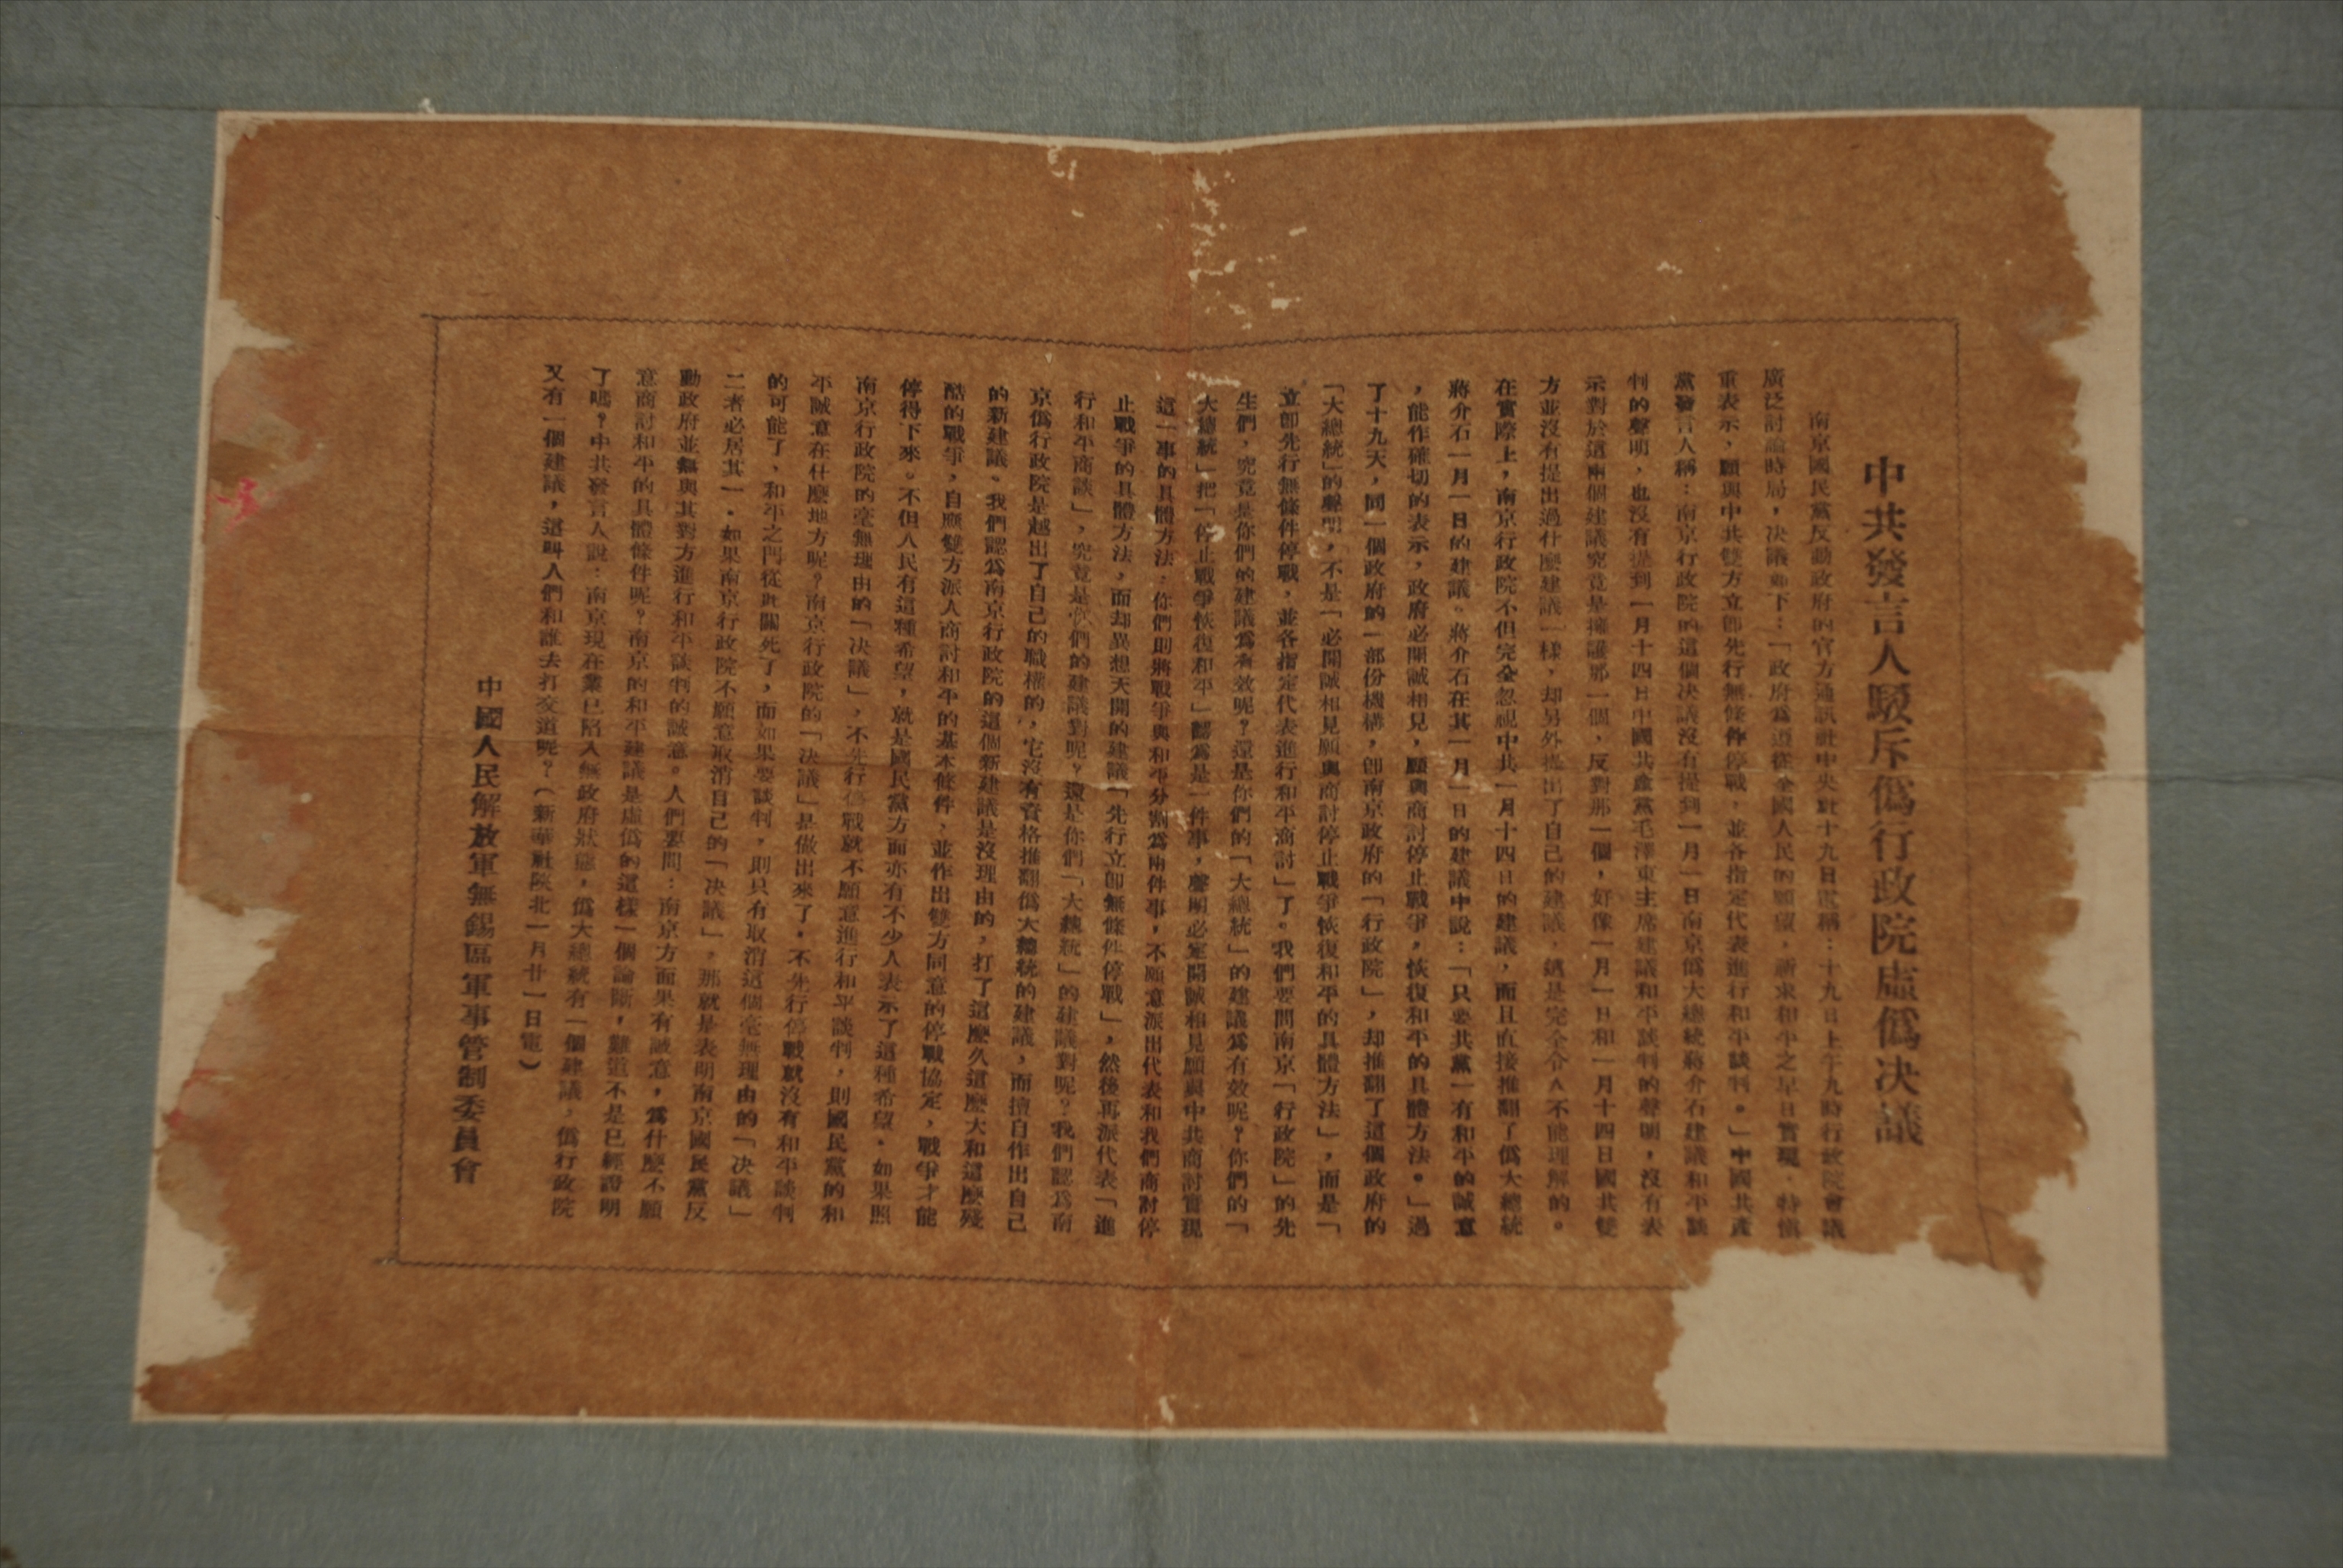 中共發言人駁斥僞行政院虛僞决議
南京國民黨反動政府的官方通訊社中央社十九日電稱：十九日上午九時行政院會議
廣泛討論時局，决議如下：「政府爲遵從全國人民的願望，祈求和平之早日實現，特愼
重表示，願與中共雙方立卽先行無條件停戰，並各指定代表進行和平談判。」中國共產
黨發言人稱：南京行政院的這個决議沒有提到一月一日南京僞大總統蔣介石建議和平談
判的聲明，也沒有提到一月十四日中國共產黨毛澤東主席建議和平談判的聲明，沒有表
示對於這兩個建議究竟是擁護那一個，反對那一個，好像一月一日和一月十四日國共雙
方並沒有提出過什麼建議一樣，却另外提出了自己的建議，這是完全令人不能理解的。
在實際上，南京行政院不但完全忽視中共一月十四日的建議，而且直接推翻了僞大總統
蔣介石一月一日的建議。蔣介石在其一月一日的建議中說：「只要共黨一有和平的誠意
，能作確切的表示，政府必開誠相見，願與商討停止戰爭，恢復和平的具體方法。」過
了十九天，同一個政府的一部份機構，卽南京政府的「行政院」，却推翻了這個政府的
「大總統」的聲明，不是「必開誠相見願與商討停止戰爭恢復和平的具體方法」，而是「
立卽先行無條件停戰，並各指定代表進行和平商討」了。我們要問南京「行政院」的先
生們，究竟是你們的建議爲有效呢？還是你們的「大總統」的建議爲有效呢？你們的「
大總統」把「停止戰爭恢復和平」翻爲是一件事，聲明必定開誠相見願與中共商討實現
這一事的具體方法；你們則將戰爭與和平分割爲兩件事，不願意派出代表和我們商討停
止戰爭的具體方法，而却異想天開的建議「先行立卽無條件停戰」，然後再派代表「進
行和平商談」，究竟是你們的建議對呢？還是你們「大總統」的建議對呢？我們認爲南
京僞行政院是越出了自己的職權的，它沒有資格推翻僞大總統的建議，而擅自作出自己
的新建議。我們認爲南京行政院的這個新建議是沒理由的，打了這麼久這麼大和這麼殘
酷的戰爭，自應雙方派人商討和平的基本條件，並作出雙方同意的停戰協定，戰爭才能
停得下來。不但人民有這種希望，就是國民黨方面亦有不少人表示了這種希望。如果照
南京行政院的毫無理由的「决議」，不先行停戰就不願意進行和平談判，則國民黨的和
平誠意在什麼地方呢？南京行政院的「决議」是做出來了，不先行停戰就沒有和平談判
的可能了，和平之門從此關死了，而如果要談判，則只有取消這個毫無理由的「决議」
二者必居其一。如果南京行政院不願意取消自己的「决議」，那就是表明南京國民黨反
動政府並無與其對方進行和平談判的誠意。人們要問：南京方面果有誠意，爲什麼不願
意商討和平的具體條件呢？南京的和平建議是虛僞的這樣一個論斷，難道不是已經證明
了嗎？中共發言人說：南京現在業已陷入無政府狀態，僞大總統有一個建議，僞行政院
又有一個建議，這叫人們和誰去打交道呢？（新華社陝北一月廿一日電）
中國人民解放軍無錫區軍事管制委員會